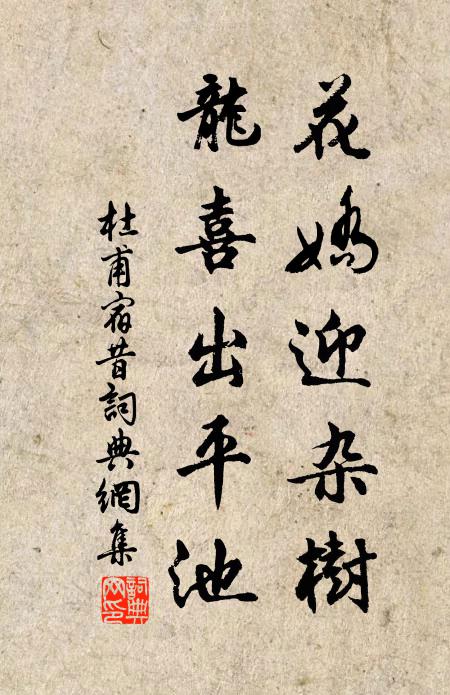 花嬌迎杂樹
龍喜出平池
杜甫宿昔詞典網集